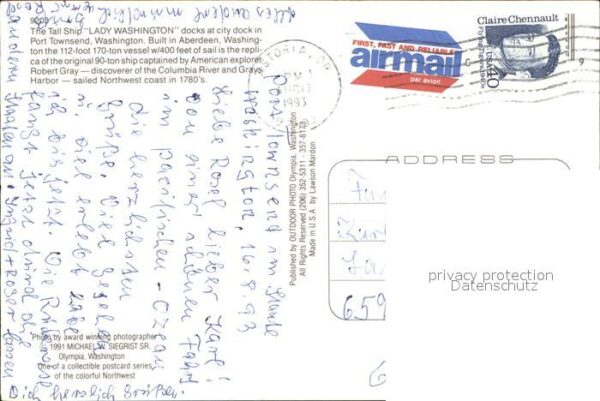 9203
The Tall Ship "LADY WASHINGTON" docks at city dock in
Port Townsend, Washington. Built in Aberdeen, Washing-
ton the 112-foot 170-ton vessel w/400 feet of sail is the repli-
ca of the original 90-ton ship captained by American explorer
Robert Gray — discoverer of the Columbia River and Grays
Harbor — sailed Northwest coast in 1780's.
VICTORIA
PM
17
1993
FIRST, FAST AND RELIABLE
airmail
par avion
Claire Chennault
USA 40
Port Townsend im Staate
Washington, 16.8.93
Liebe Rosel, lieber Karl!
Von einer schönen Fahrt
im pazifischen Ozean
die herzlichsten
Grüße. Viel gesehen
u. viel erlebt habe
ich bis jetzt. Die Rückreise
fange jetzt
alles andere
mündlich
Dich herzlich grüßen.
Published by OUTDOOR PHOTO Olympia, Washington
All Rights Reserved (206) 352-5311 · 357-8173
Made in U.S.A. by Lawson Mardon
ADDRESS
659
privacy protection
Datenschutz
Photo by award winning photographer
1991 MICHAEL W. SIEGRIST SR.
Olympia, Washington
One of a collectible postcard series
of the colorful Northwest